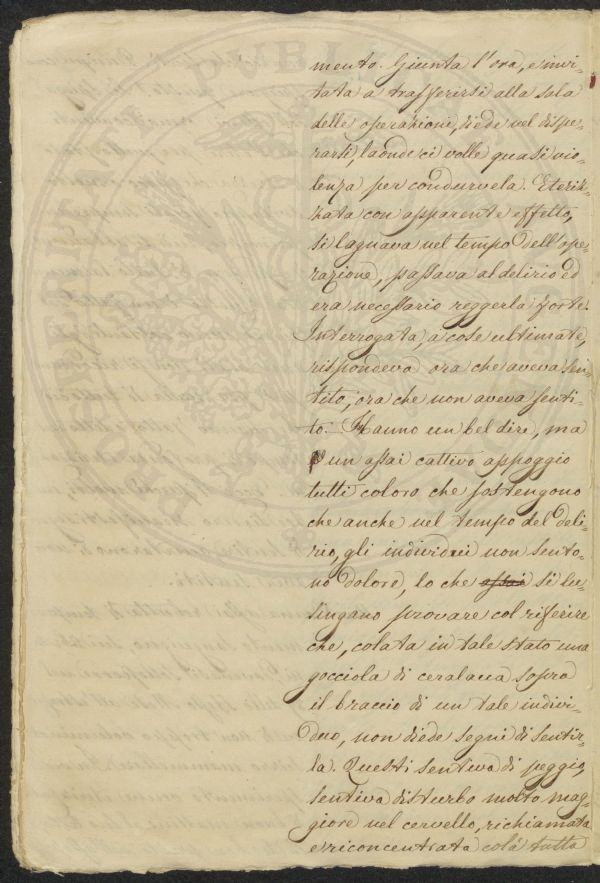 mento. Giunta l'ora, e invi-
tata a trasferirsi alla sala
delle operazione, diede nel dispe-
rarsi, laonde ci volle quasi vio-
lenza per condurvela. Eteriz-
zata con apparente effetto,
si lagnava nel tempo dell'ope-
razione, passava al delirio ed
era necessario reggerla forte.
Interrogata, a cose ultimate,
rispondeva ora che aveva sen-
tito, ora che non aveva senti-
to. Hanno un bel dire, ma
è un assai cattivo appoggio
tutti coloro che sostengono
che anche nel tempo del deli-
rio, gli individui non sento-
no dolore, lo che assai si lu-
singano provare col riferire
che, colata in tale stato una
gocciola di ceralacca sopra
il braccio di un tale indivi-
duo, non diede segni di sentir-
la. Questi sentiva di peggio,
sentiva disturbo molto mag-
giore nel cervello, richiamata
e riconcentrata colà tutta